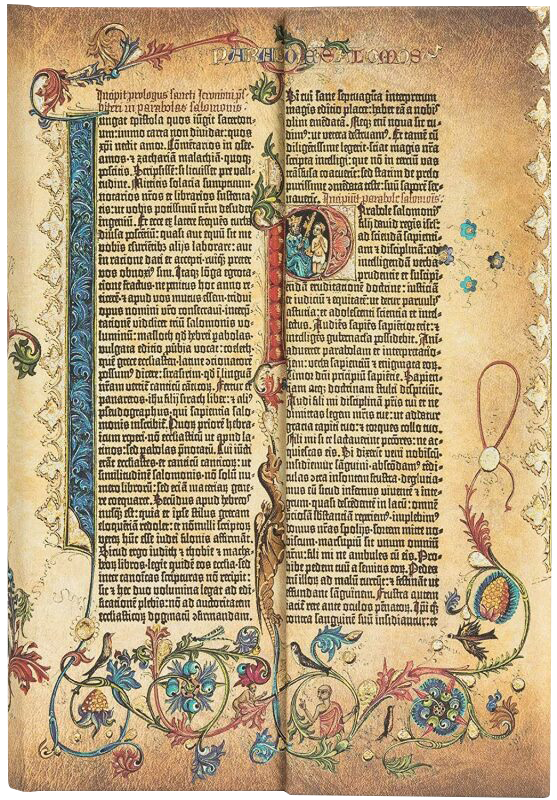 PARABOLE SALOMONIS
Incipit prologus sancti Jeronimi p̄s-
biteri in parabolas salomonis.
Iungat epistola quos iūgit sacerdo-
tium: immo carta non dividat: quos
xp̄i nectit amor. Cōmētarios in osee.
amos. et zachariā malachiā. quoqꝫ
poscitis. Scripsissē: si licuisset pre vali-
tudine. Mittitis solacia sumptuum.
notarios nr̄os et librarios sustenta-
tis: ut vobis potissimū nr̄m desudet
ingeniū. Et ecce ex latere frequēs turba
diūsa poscētiū: quasi aut equū sit me
vobis esuriētibus aliis laborare: aut
in ratione dati et accepti. cuiqꝫ preter
vos obnoxi᷒ sim. Itaqꝫ lōga egrota-
tione fract᷒. ne penitus hoc anno re-
ticerē et apud vos mutus essem. tridui
opus nomini vr̄o consecraui. interp-
tationē videlicet triū salomonis vo-
luminū: masloth qd̄ hebrei pabolas.
vulgata editio ꝓūbia vocat: coeleth.
quē grece ecclesiastē. latine ꝯcionatorē
possum᷒ dicere: sirasirim. qd̄ i linguā
nr̄am vertit̄ canticū cāticoꝝ. Fertur et
panaretos. ih̄u filii sirach liber: et ali᷒
pseudographus. qui sapientia salo-
monis inscribit̄. Quoꝝ priorē hebra-
icum repperi. nō ecclesiasticū ut apud la-
tinos: sed pabolas p̄notatū. Cui iūcti
erāt ecclesiastes. et canticū canticoꝝ: ut
similitudinē salomonis. nō solū nu-
mero librorū: sed etiā materiaꝝ gene-
re coequaret. Secūdus apud hebreos
nusqꝫ est: quia et ipse stilus grecam
eloquētiā redolet: et nōnulli scriptoꝝ
veteꝝ hūc esse iudei filonis affirmāt.
Sicud ergo iudith et thobie et macha-
beoꝝ libros. legit quidē eos eccl̄ia. sed
inter canoicas scripturas nō recipit:
sic et hec duo volumina legat ad edi-
ficationē plebis: nō ad auctoritatem
ecclesiasticoꝝ dogmatū ꝯfirmandam.
Si cui sane septuaginta interpretum
magis editio placet: habet eā a nobis
olim emēdatā. Neqꝫ em̄ noua sic cu-
dim᷒: ut vetera destruam᷒. Et tamē cū
diligētissime legerit. sciat magis nr̄a
scripta intelligi: que nō in terciū vas
trāsfusa coacuerīt: sed statim de prelo
purissime ꝯmēdata teste: suū saporē ser-
uauerīt.
Incipiūt parabole salomonis.
Parabole salomonis
filij dauid regis isrl̄:
ad sciendā sapienti-
am et disciplinā: ad
intelligendā verba
prudentie et suscipi-
endā eruditatōnē doctrine: iusticiā
et iudiciū et equitatē: ut detur paruulis
astucia: et adolescenti sciencia et intel-
lectus. Audiēs sapiēs sapiētior erit: et
intelligēs gubernacla possidebit. Ani-
aduertet parabolam et interpretatio-
nem: verba sapientiū et enigmata eoꝝ.
Timor dn̄i principiū sapiētie. Sapien-
tiam atqꝫ doctrinam stulti despiciūt.
Audi fili mi disciplinā pr̄is tui et ne
dimittas legem mr̄is tue: ut addatur
gracia capiti tuo: et torques collo tuo.
Fili mi si te lactauerint p̄cc̄ores: ne ac-
quiescas eis. Si dixerīt veni nobiscū.
insidiemur sāguini. abscōdam᷒ tēdi-
culas ꝯtra insontem frustra. degluciam᷒
eum sicud infernus viuentē et inte-
grum. quasi descendentē in lacū: omnē
preciosā substantiā reperiem᷒. implebim᷒
domus nr̄as spolijs. sortem mitte no-
biscum. marsupiū sit unum omniū
nr̄m: fili mi ne ambules cū eis. Pro-
hibe pedem tuū a semitis eoꝝ. Pedes
em̄ illoꝝ ad malū currūt: et festināt ut
effundant sāguinem. Frustra autem
iacit̄ rete ante oculos pēnatoꝝ. Ipi q̄qꝫ
contra sanguinē suū insidiantur: et